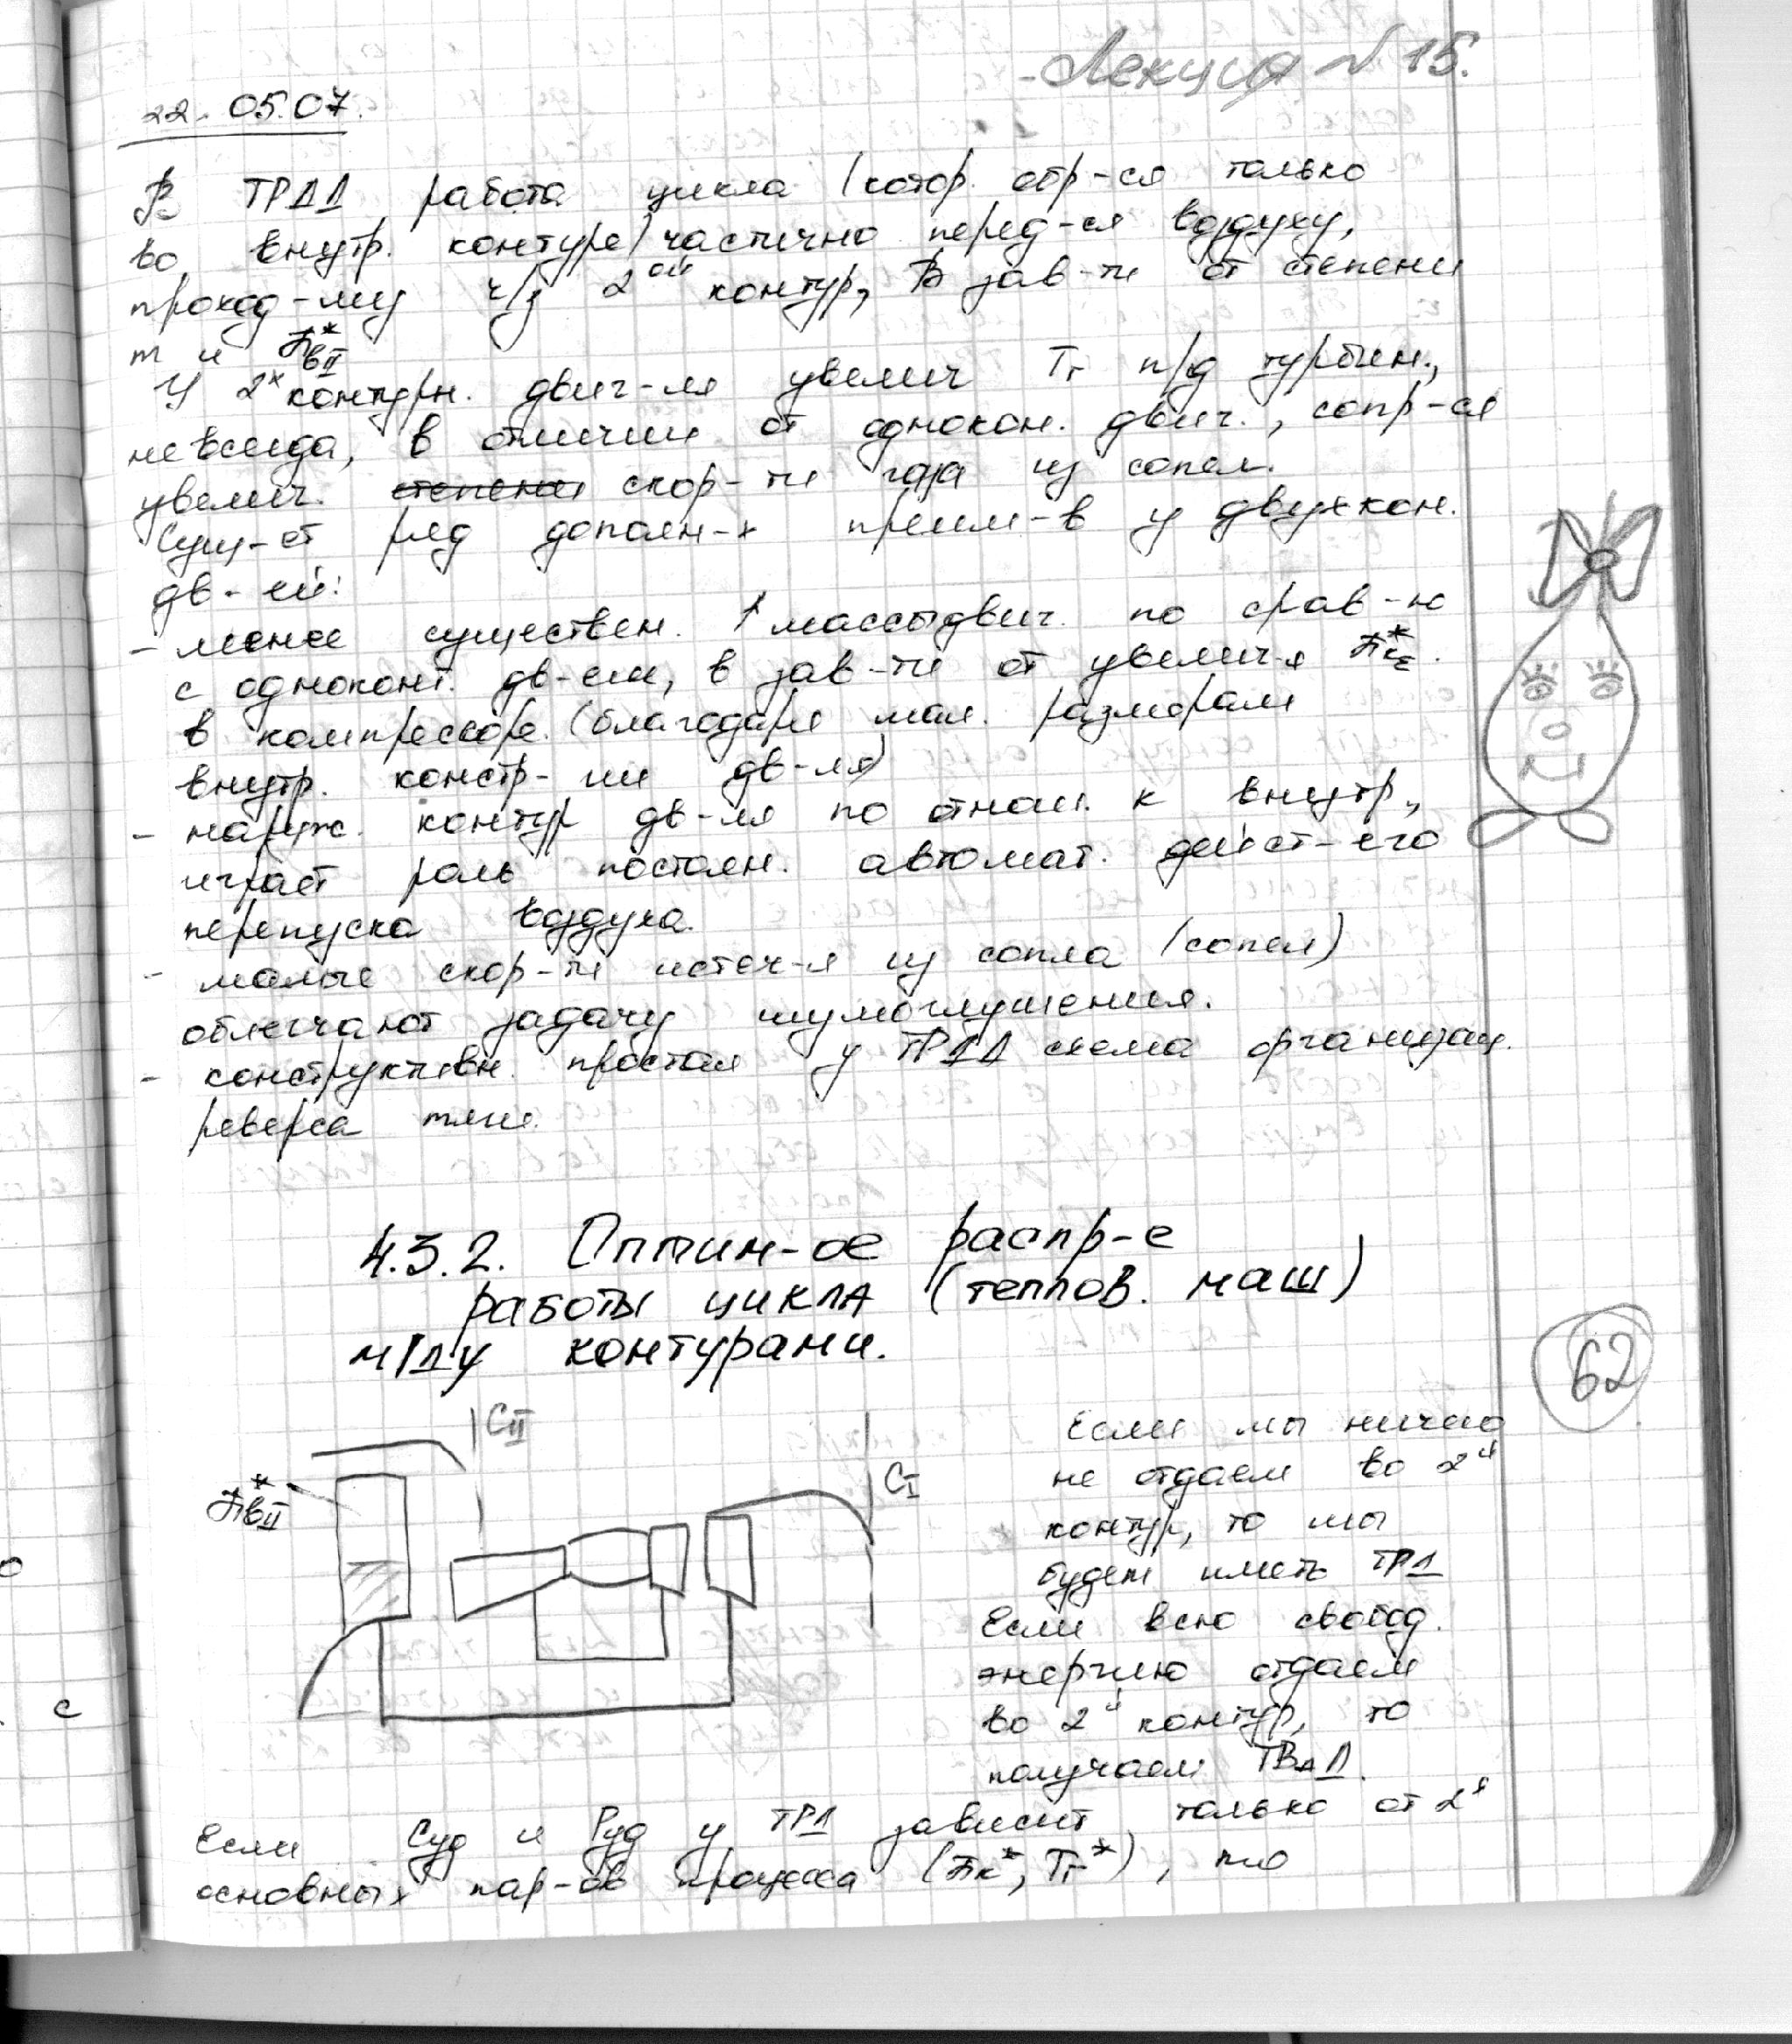 Лекция №15.
22.05.07.
В ТРДД работа цикла (котор. обр-ся только
во внутр. контуре) частично перед-ся воздуху,
проход-му ч/з 2ой контур, в зав-ти от степени
m и πвII*
У 2х контурн. двиг-ля увелич Тг п/д турбин.,
не всегда, в отличии от однокон. двиг., сопр-ся
увелич. степени скор-ти газа из сопел.
Сущ-ет ряд дополн-х преим-в у двухкон.
дв-ей:
- менее существен. ↑ массы двиг. по срав-ю
с одноконт. дв-ем, в зав-ти от увелич-я πкΣ*.
в компрессоре. (благодаря мал. размерам
внутр. констр-ии дв-ля)
- наруж. контур дв-ля по отнош. к внутр,
играет роль постоян. автомат. дейст-его
перепуска воздуха.
- малые скор-ти истеч-я из сопла (сопел)
облегчают задачу шумоглушения.
- конструктивн. простая у ТРДД схема организац.
реверса тяги.
4.3.2. Оптим-ое распр-е
работы цикла (теплов. маш)
м/ду контурами.
62
CII
πвII*
CI
Если мы ничего
не отдаем во 2й
контур, то мы
будем иметь ТРД
Если всю свобод.
энергию отдаем
во 2й контур, то
получаем ТВаД.
Если Суд и Руд у ТРД зависит только от 2х
основных пар-ов процесса (πк*, Тг*), то
с